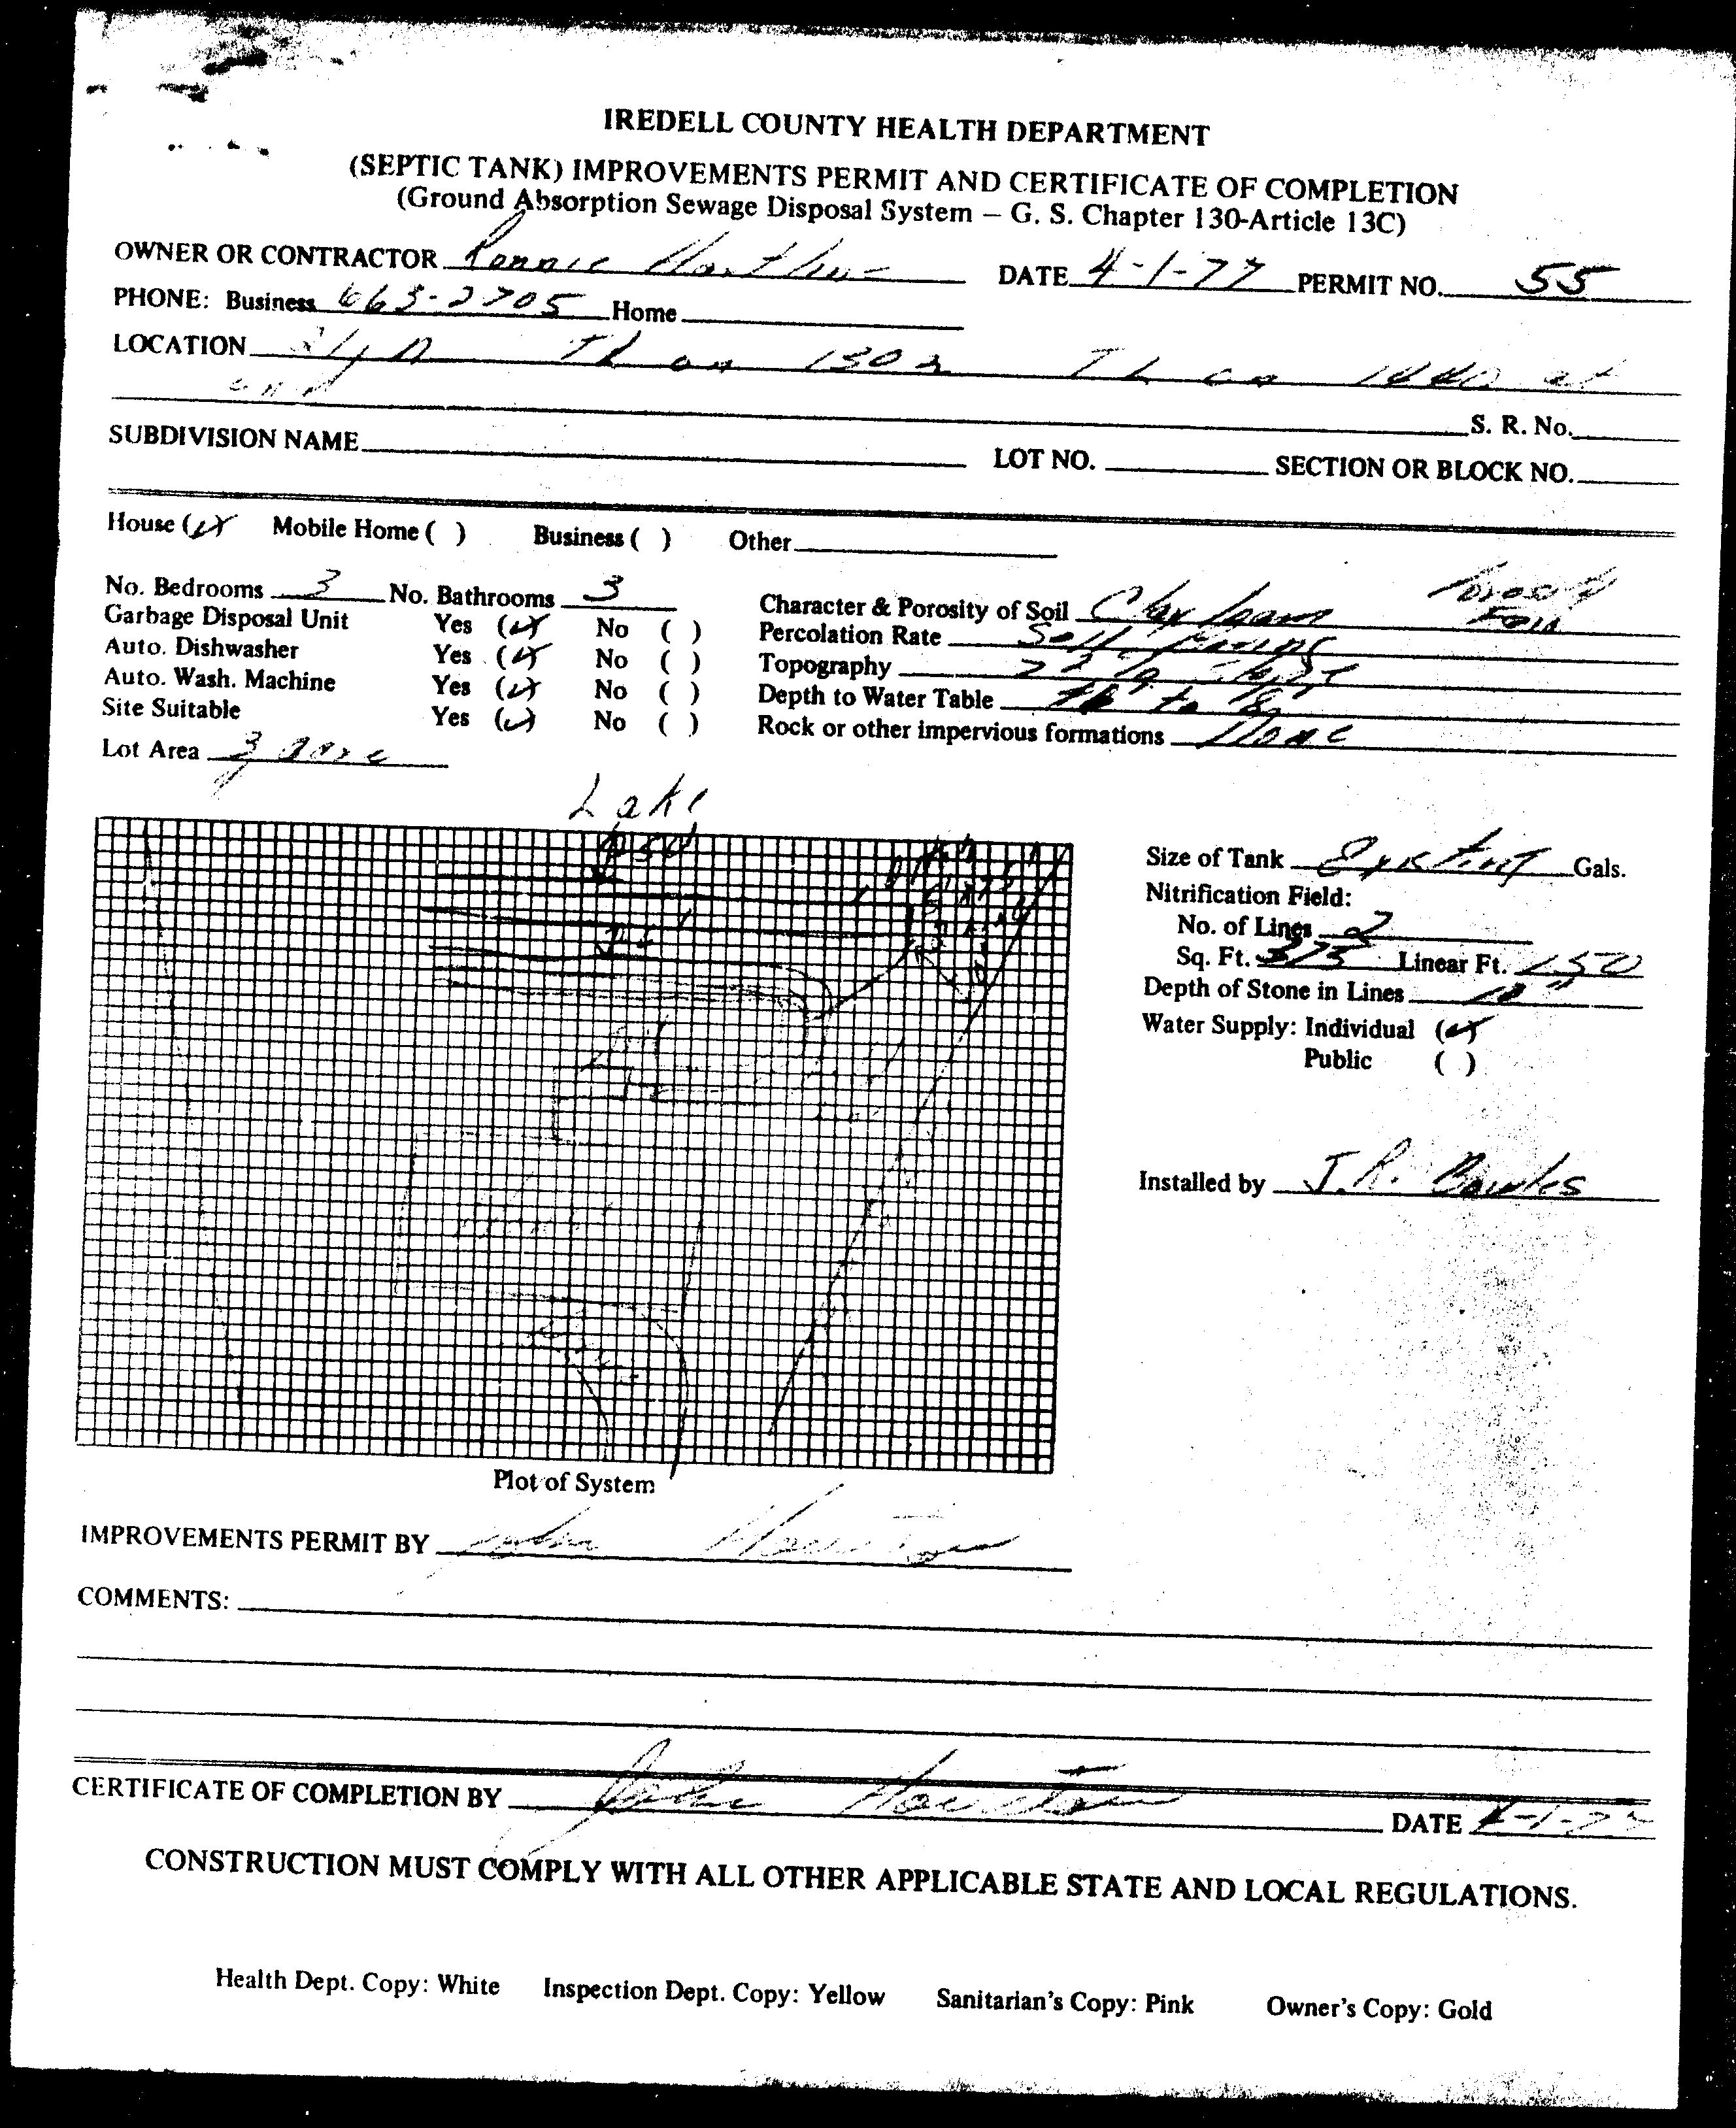 IREDELL COUNTY HEALTH DEPARTMENT
(SEPTIC TANK) IMPROVEMENTS PERMIT AND CERTIFICATE OF COMPLETION
(Ground Absorption Sewage Disposal System – G. S. Chapter 130-Article 13C)
OWNER OR CONTRACTOR Ronnie DATE 4-1-77 PERMIT NO. 55
PHONE: Business 663-2705 Home
LOCATION 21 N TL on 1302 TL on at
end
S. R. No.
SUBDIVISION NAME LOT NO. SECTION OR BLOCK NO.
House (x) Mobile Home ( ) Business ( ) Other
No. Bedrooms 3 No. Bathrooms 3 Character & Porosity of Soil Clay loam
Garbage Disposal Unit Yes (x) No ( ) Percolation Rate
Auto. Dishwasher Yes (x) No ( ) Topography
Auto. Wash. Machine Yes (x) No ( ) Depth to Water Table
Site Suitable Yes (x) No ( ) Rock or other impervious formations None
Lot Area 3 acre
Lake
50'
Size of Tank Existing Gals.
Nitrification Field:
No. of Lines 2
Sq. Ft. 375 Linear Ft. 150
Depth of Stone in Lines
Water Supply: Individual (x)
Public ( )
Installed by J.R. Bowles
Plot of System
IMPROVEMENTS PERMIT BY John Houston
COMMENTS:
CERTIFICATE OF COMPLETION BY John Houston DATE 4-1-77
CONSTRUCTION MUST COMPLY WITH ALL OTHER APPLICABLE STATE AND LOCAL REGULATIONS.
Health Dept. Copy: White Inspection Dept. Copy: Yellow Sanitarian's Copy: Pink Owner's Copy: Gold